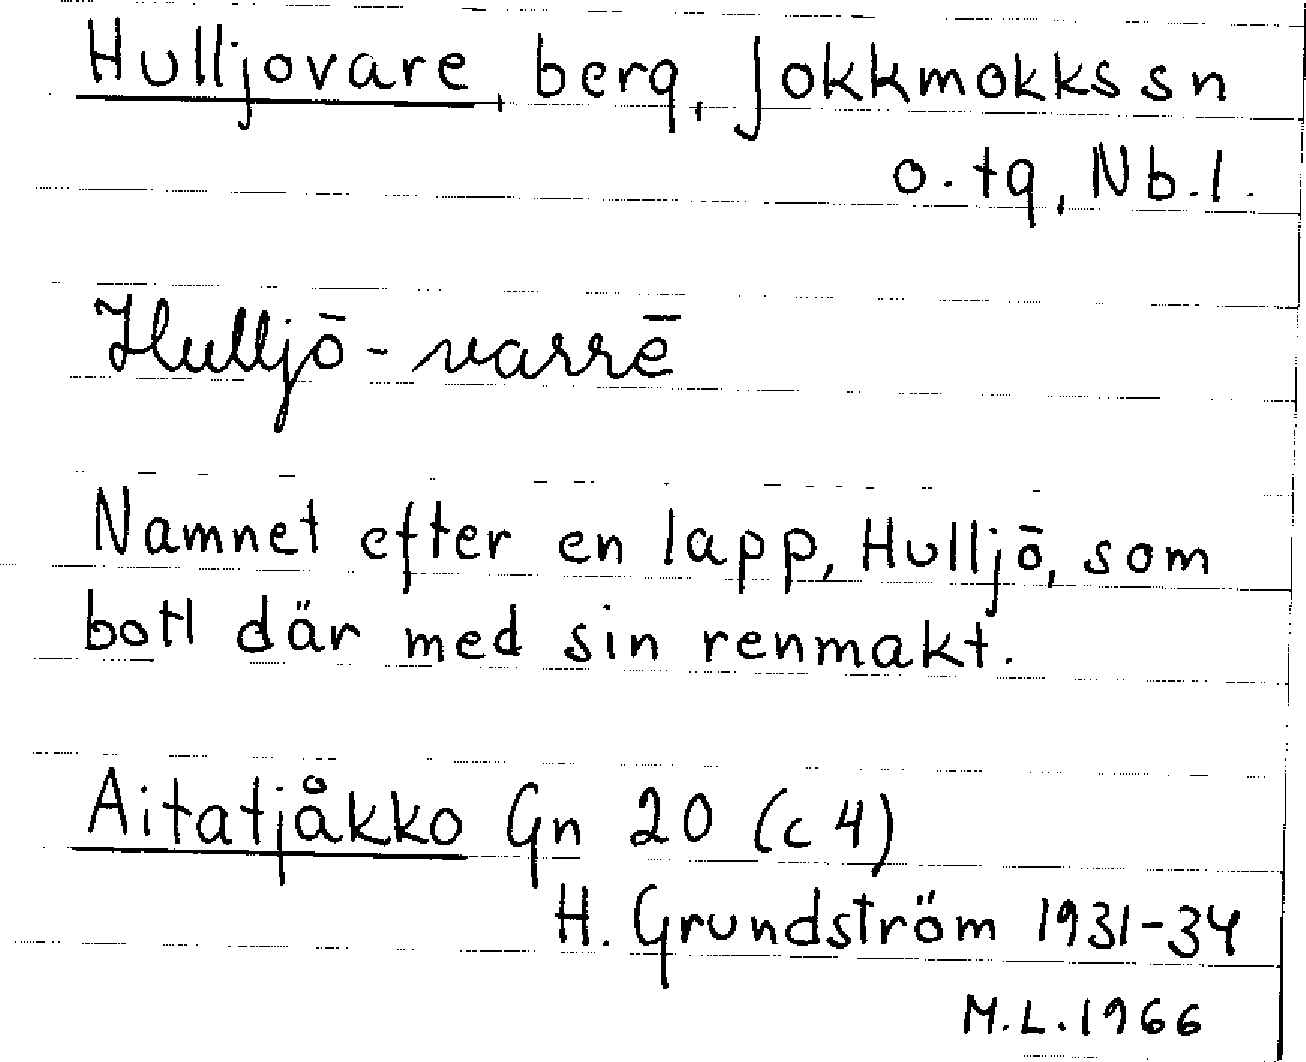 Hulljovare, berg, Jokkmokks sn
o. tg, Nb. l.
Hulljō-varrē
Namnet efter en lapp, Hulljō, som
bott där med sin renmakt.
Aitatjåkko Gn 20 (c 4)
H. Grundström 1931-34
M.L. 1966